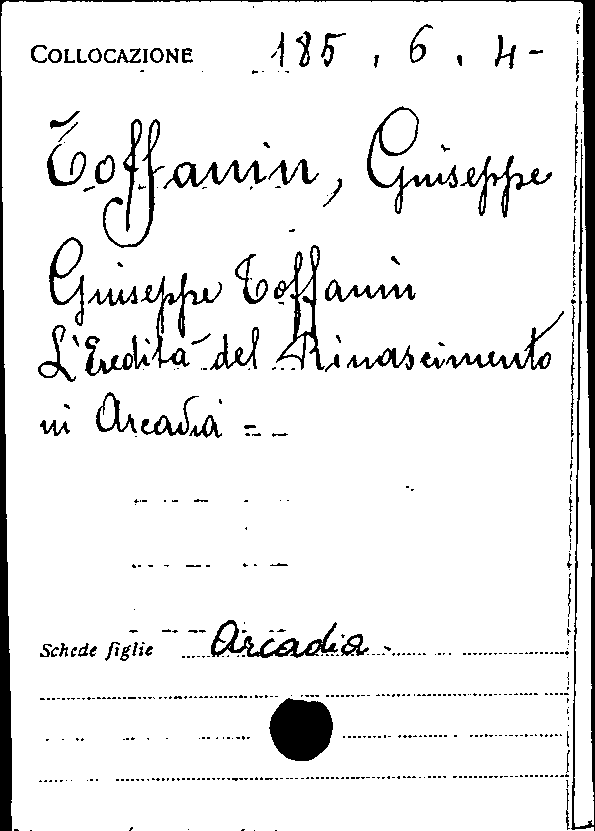 COLLOCAZIONE 185.6.4-
Toffanin, Giuseppe
Giuseppe Toffanin
L'Eredità del Rinascimento
in Arcadia =-
Schede figlie Arcadia.